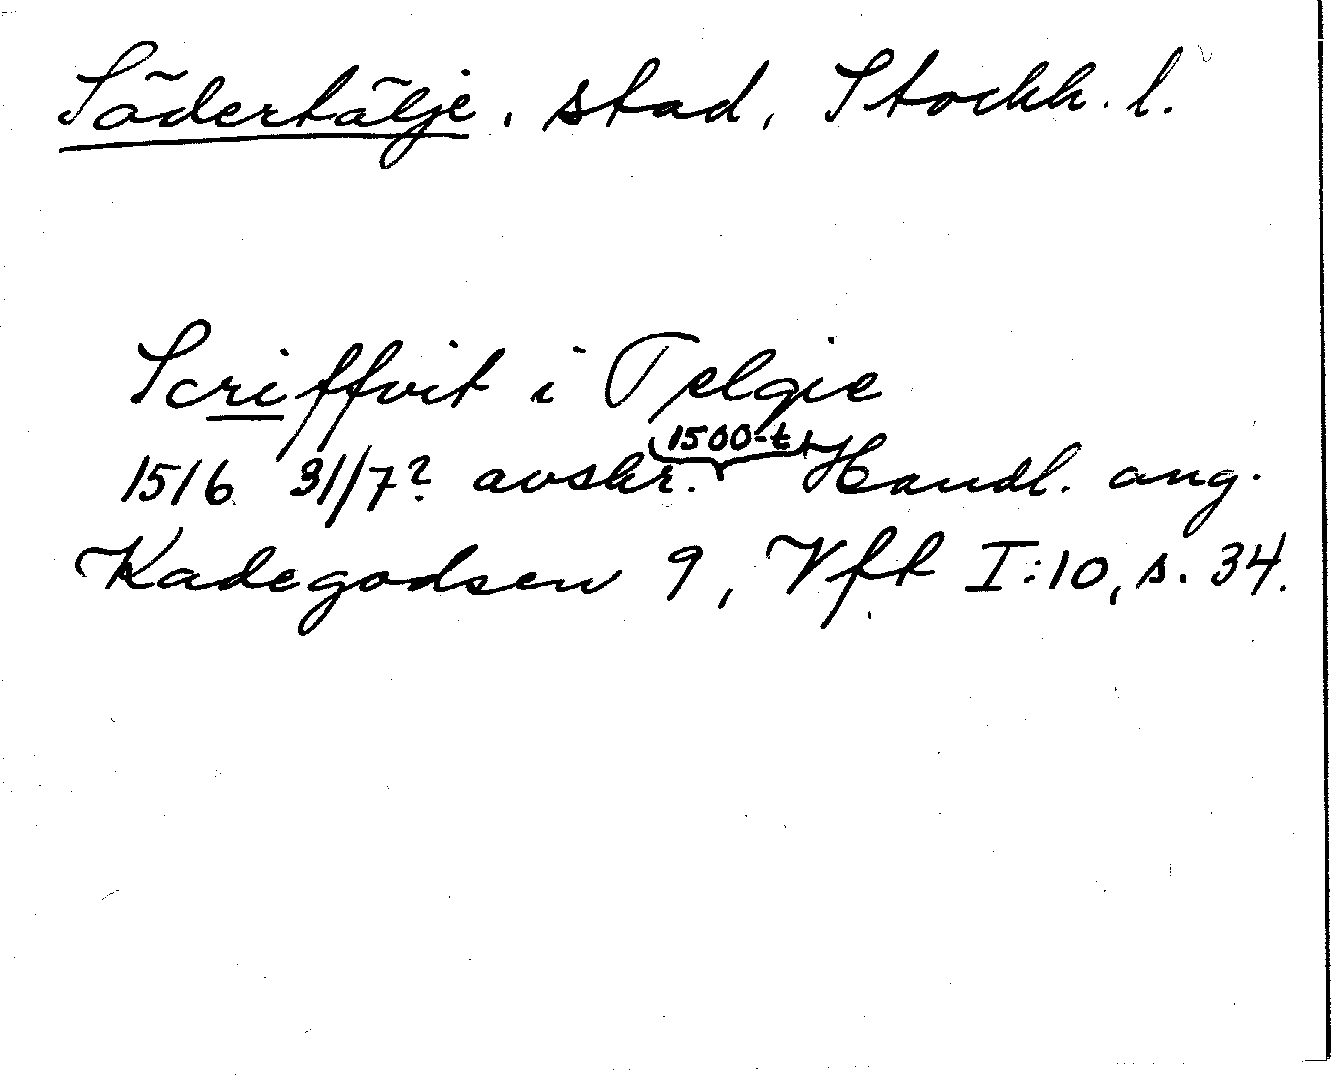 Södertälje, stad, Stockh. l.
Scriffvit i Telgie
1516 31/7? avskr. 1500-t Handl. ang.
Kadegodsen 9, Vft I:10, s. 34.